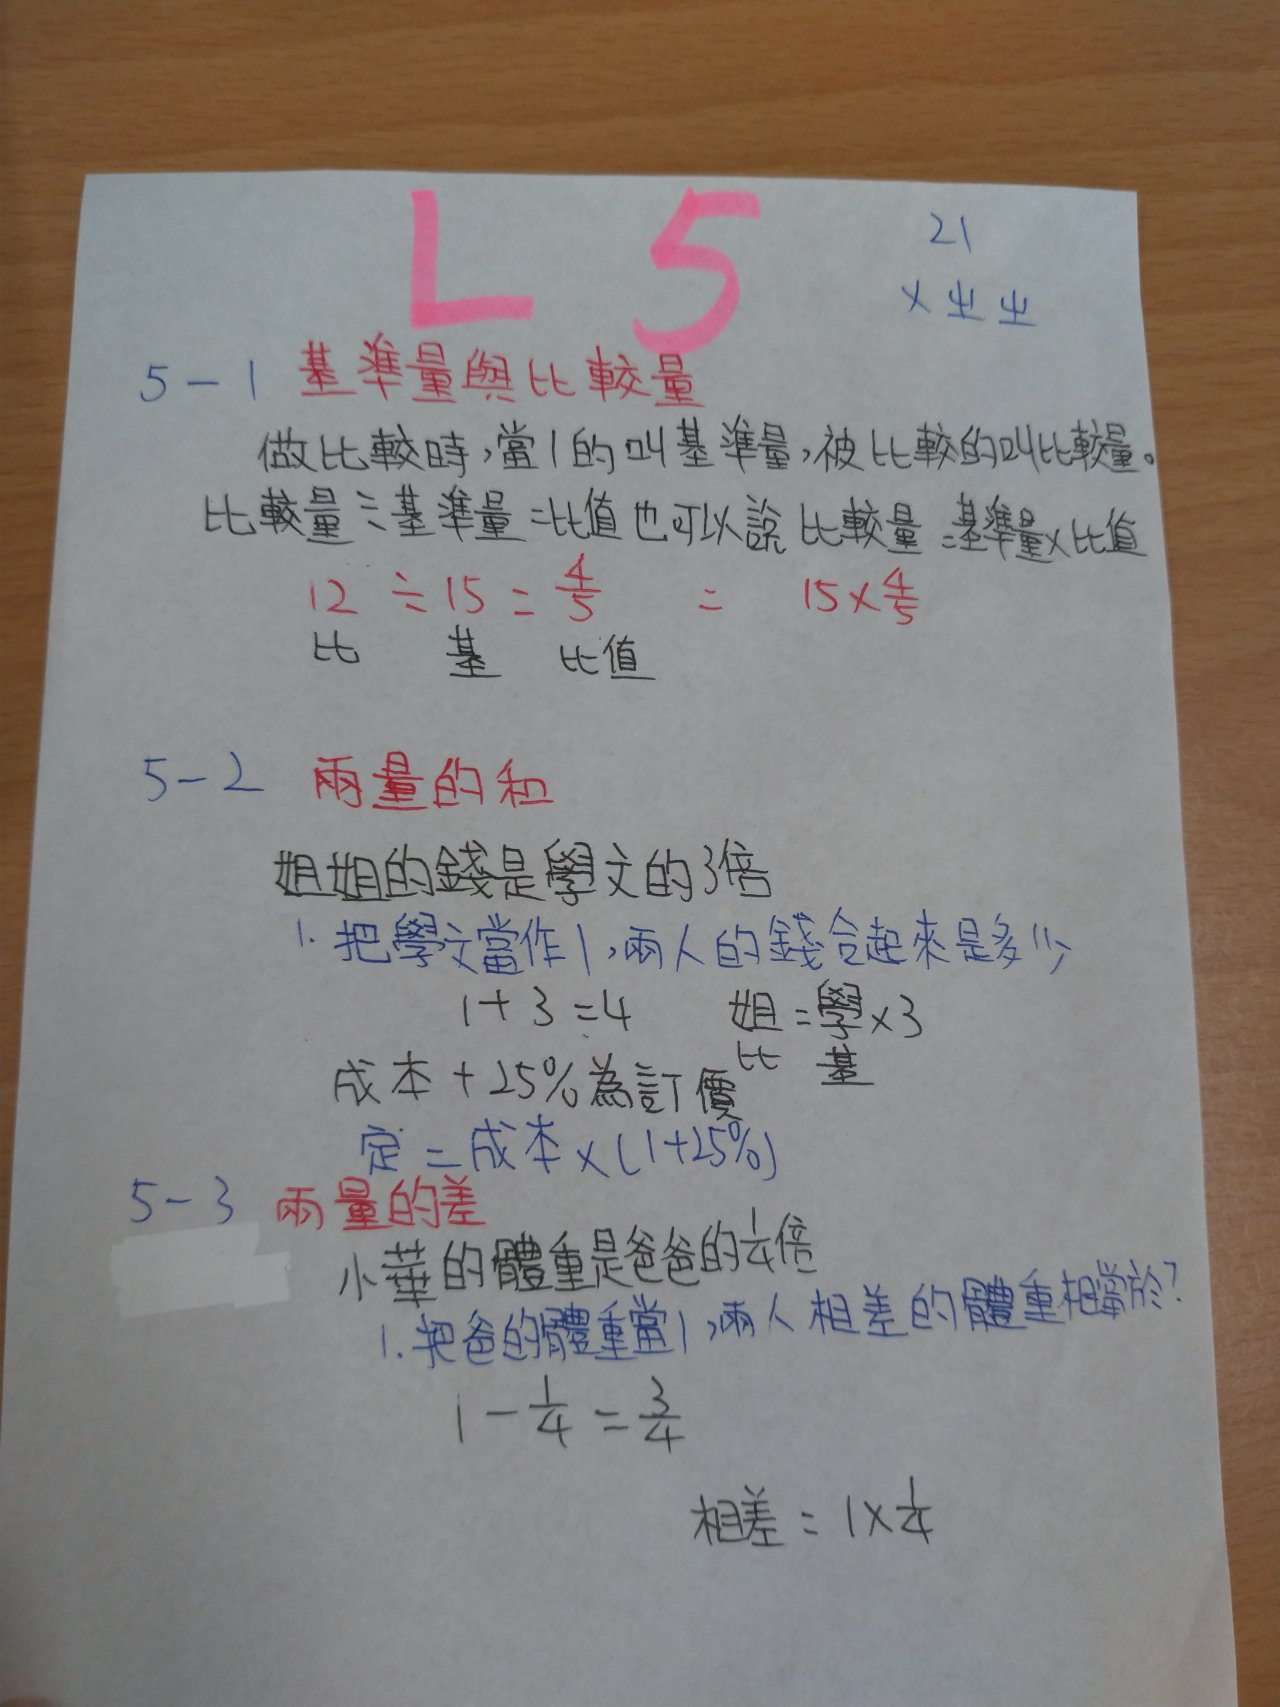 L 5
21
5-1 基準量與比較量
做比較時,當1的叫基準量,被比較的叫比較量。
比較量÷基準量=比值也可以說 比較量=基準量×比值
12 ÷ 15 = 4/5 = 15×4/5
比 基 比值
5-2 兩量的和
姐姐的錢是學文的3倍
1. 把學文當作1,兩人的錢合起來是多少
1+3=4 姐=學×3
比 基
成本+25%為訂價
定=成本×(1+25%)
5-3 兩量的差
小華的體重是爸爸的1/4倍
1.把爸的體重當1,兩人相差的體重相當於?
1-1/4=3/4
相差=1×1/4